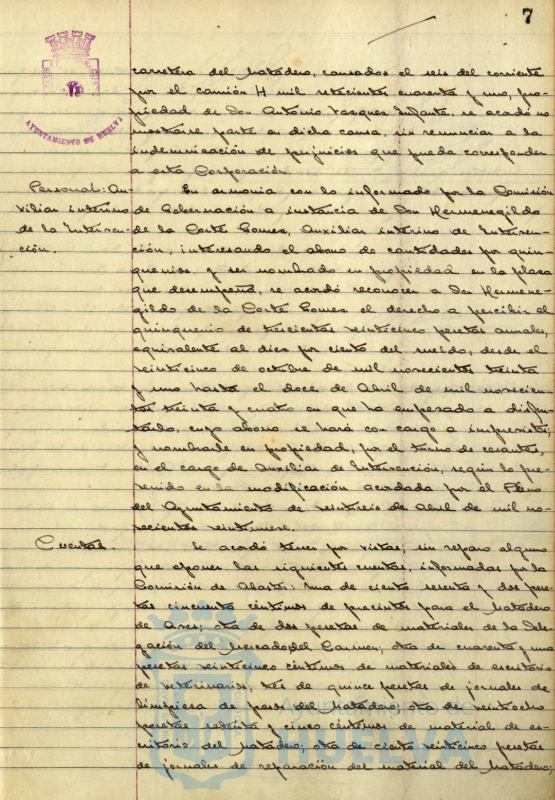 7
AYUNTAMIENTO DE HUELVA
carretera del Matadero, causados el seis del corriente
por el camión H mil setecientos cuarenta y uno, pro-
piedad de Don Antonio Vazquez Infante, se acordó no
mostrarse parte en dicha causa, sin renunciar a la
indemnización de perjuicios que pueda corresponder
a esta Corporación.
Personal: Au-
xiliar interino
de la Interven-
ción.
En armonia con lo informado por la Comisión
de Gobernación a instancia de Don Hermenegildo
de la Corte Gomez, Auxiliar interino de Interven-
ción, interesando el abono de cantidades por quin-
quenios, y ser nombrado en propiedad en la plaza
que desempeña, se acordó reconocer a Don Hermene-
gildo de la Corte Gomez el derecho a percibir el
quinquenio de trescientas veinticinco pesetas anuales,
equivalente al diez por ciento del sueldo, desde el
veinticinco de octubre de mil novecientos treinta
y uno hasta el doce de Abril de mil novecien-
tos treinta y cuatro en que ha empezado a disfru-
tarlo, cuyo abono se hará con cargo a imprevistos;
y nombrarle en propiedad, por el turno de cesantes,
en el cargo de Auxiliar de Intervención, según lo pre-
venido en la modificación acordada por el Pleno
del Ayuntamiento de veintiseis de Abril de mil no-
vecientos veintinueve.
Cuentas.
Se acordó tener por vistas, sin reparo alguno
que oponer las siguientes cuentas, informadas por la
Comisión de Abastos: Una de ciento sesenta y dos pese-
tas cincuenta céntimos de precintos para el Matadero
de Aves; otra de dos pesetas de materiales de la Dele-
gación del Mercado del Carmen; otra de cuarenta y una
pesetas veinticinco céntimos de materiales de escritorio
de veterinarios; tres de quince pesetas de jornales de
limpieza de pozos del Matadero; otra de veintiocho
pesetas setenta y cinco céntimos de material de es-
critorio del Matadero; otra de ciento veinticinco pesetas
de jornales de reparación del material del Matadero;
HUELVA